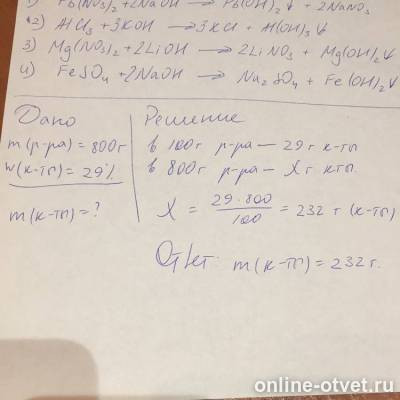 1) Pb(NO3)2 + 2NaOH → Pb(OH)2↓ + 2NaNO3
2) AlCl3 + 3KOH → 3KCl + Al(OH)3↓
3) Mg(NO3)2 + 2LiOH → 2LiNO3 + Mg(OH)2↓
4) FeSO4 + 2NaOH → Na2SO4 + Fe(OH)2↓
Дано
m(р-ра) = 800г
W(к-ты) = 29%
m(к-ты) = ?
Решение
в 100г р-ра — 29г к-ты
в 800г р-ра — Xг к-ты.
X = 29·800/100 = 232 г (к-ты)
Ответ: m(к-ты) = 232г.
online-otvet.ru